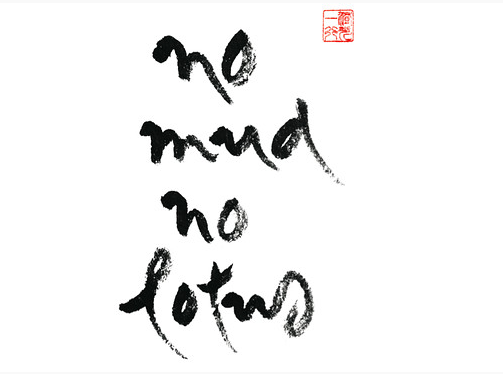 no
mud
no
lotus